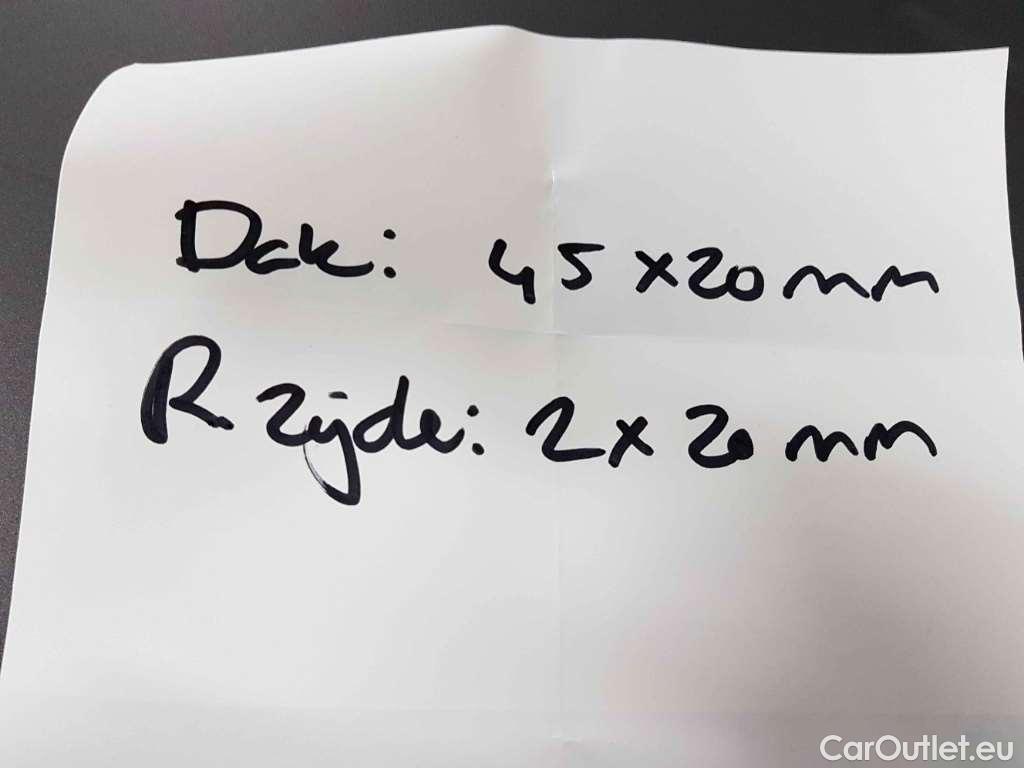 Dak: 45 x 20 mm
R zijde: 2 x 20 mm
CarOutlet.eu